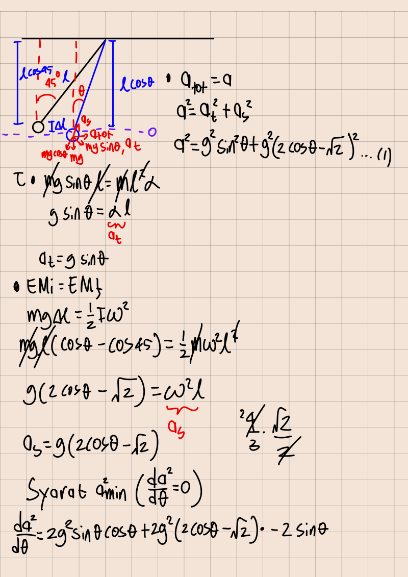 l cos45
45°
l
θ
l cosθ
Δl
a_s
a_tot
mg sinθ, a_t
mg cosθ
mg
0
• a_tot = a
a² = a_t² + a_s²
a² = g² sin²θ + g² (2 cosθ - √2)² ... (1)
τ • mg sinθ l = ml² α
g sinθ = α l
a_t
a_t = g sinθ
• EMi = EMf
mgΔl = 1/2 Iω²
mgl (cosθ - cos45) = 1/2 mω² l²
g (2 cosθ - √2) = ω² l
a_s
a_s = g (2cosθ - √2)
2 4/3 . √2/2
Syarat a² min (da²/dθ = 0)
da²/dθ = 2g² sinθ cosθ + 2g² (2cosθ - √2) • - 2 sinθ